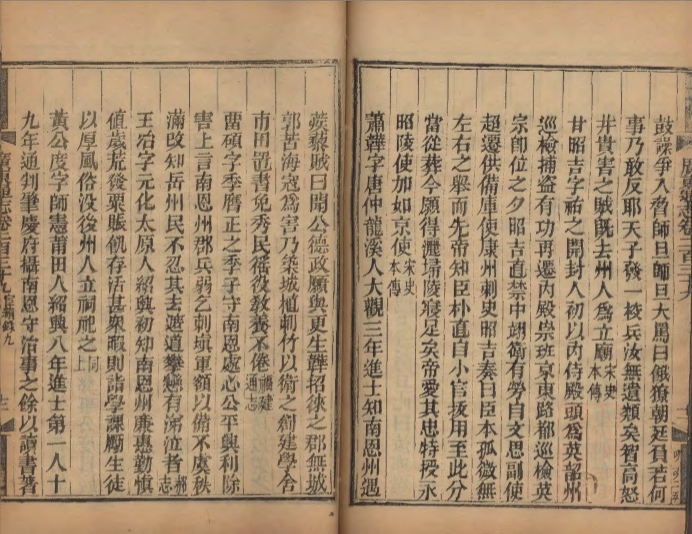 鼓譟爭入脅師旦師旦大罵曰餓獠朝廷負若何
事乃敢反耶天子發一校兵汝無遺類矣智高怒
井貴害之賊旣去州人爲立廟宋史本傳
甘昭吉字祐之開封人初以內侍殿頭爲英韶州
巡檢捕盜有功再遷內殿崇班京東路都巡檢英
宗卽位之夕昭吉直禁中翊衞有勞自文思副使
超遷供備庫使康州刺史昭吉奏曰臣本孤微無
左右之舉而先帝知臣朴直自小官拔用至此分
當從葬今願得灑掃陵寢足矣帝愛其忠特授永
昭陵使加如京使宋史本傳
蕭韡字唐仲龍溪人大觀三年進士知南恩州遇
蔟黎賊曰聞公德政願與更生韡招徠之郡無城
郭苦海寇爲害乃築城植刺竹以衞之創建學舍
市田置書免秀民徭役敎養不倦福建通志
留碩字季膺正之季子守南恩處心公平興利除
害上言南恩州郡兵弱乞刺塡軍額以備不虞秩
滿改知岳州民不忍其去遮道攀轅有涕泣者郝志
王冶字元化太原人紹興初知南恩州廉惠勤愼
値歲荒發粟賑飢存活甚衆暇則詣學課勵生徒
以厚風俗没後州人立祠祀之同上
黃公度字師憲莆田人紹興八年進士第一人十
九年通判肇慶府攝南恩守治事之餘以讀書著
廣東通志卷二百三十九宦績錄九